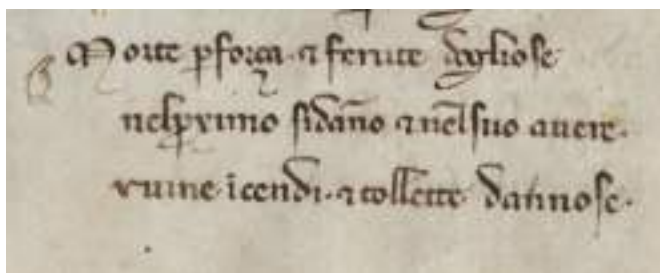 Morte p força. ⁊ ferute dogliose
nel pximo si dãno ⁊ nel suo auere.
ruine. icendi. ⁊ tollette dannose.